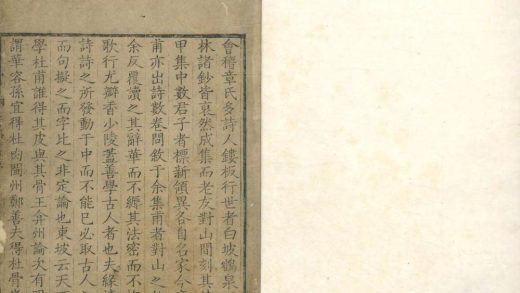 會稽章氏多詩人鏤板行世者白坡鶴泉
林諸鈔皆裒然成集而老友對山間刻其
甲集中數君子者標新領異各自名家今
甫亦出詩數卷問敘于余集甫者對山之
余反覆讀之其辭華而不縟其法密而不
歌行尤瓣香少陵蓋善學古人者也夫緣
詩詩之所發動于中而不能已必取古人
而句擬之而字比之非定論也東坡云天
學杜甫誰得其皮與其骨王弇州論次有
謂華容孫宜得杜肉閩州鄭善夫得杜骨